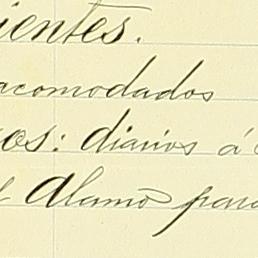 ientes.
acomodados
os: diarios á
l Alamo para